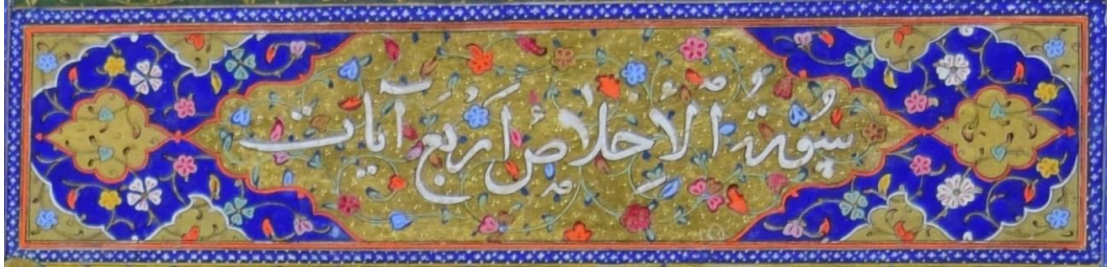 سورة الإخلاص اربع آيات